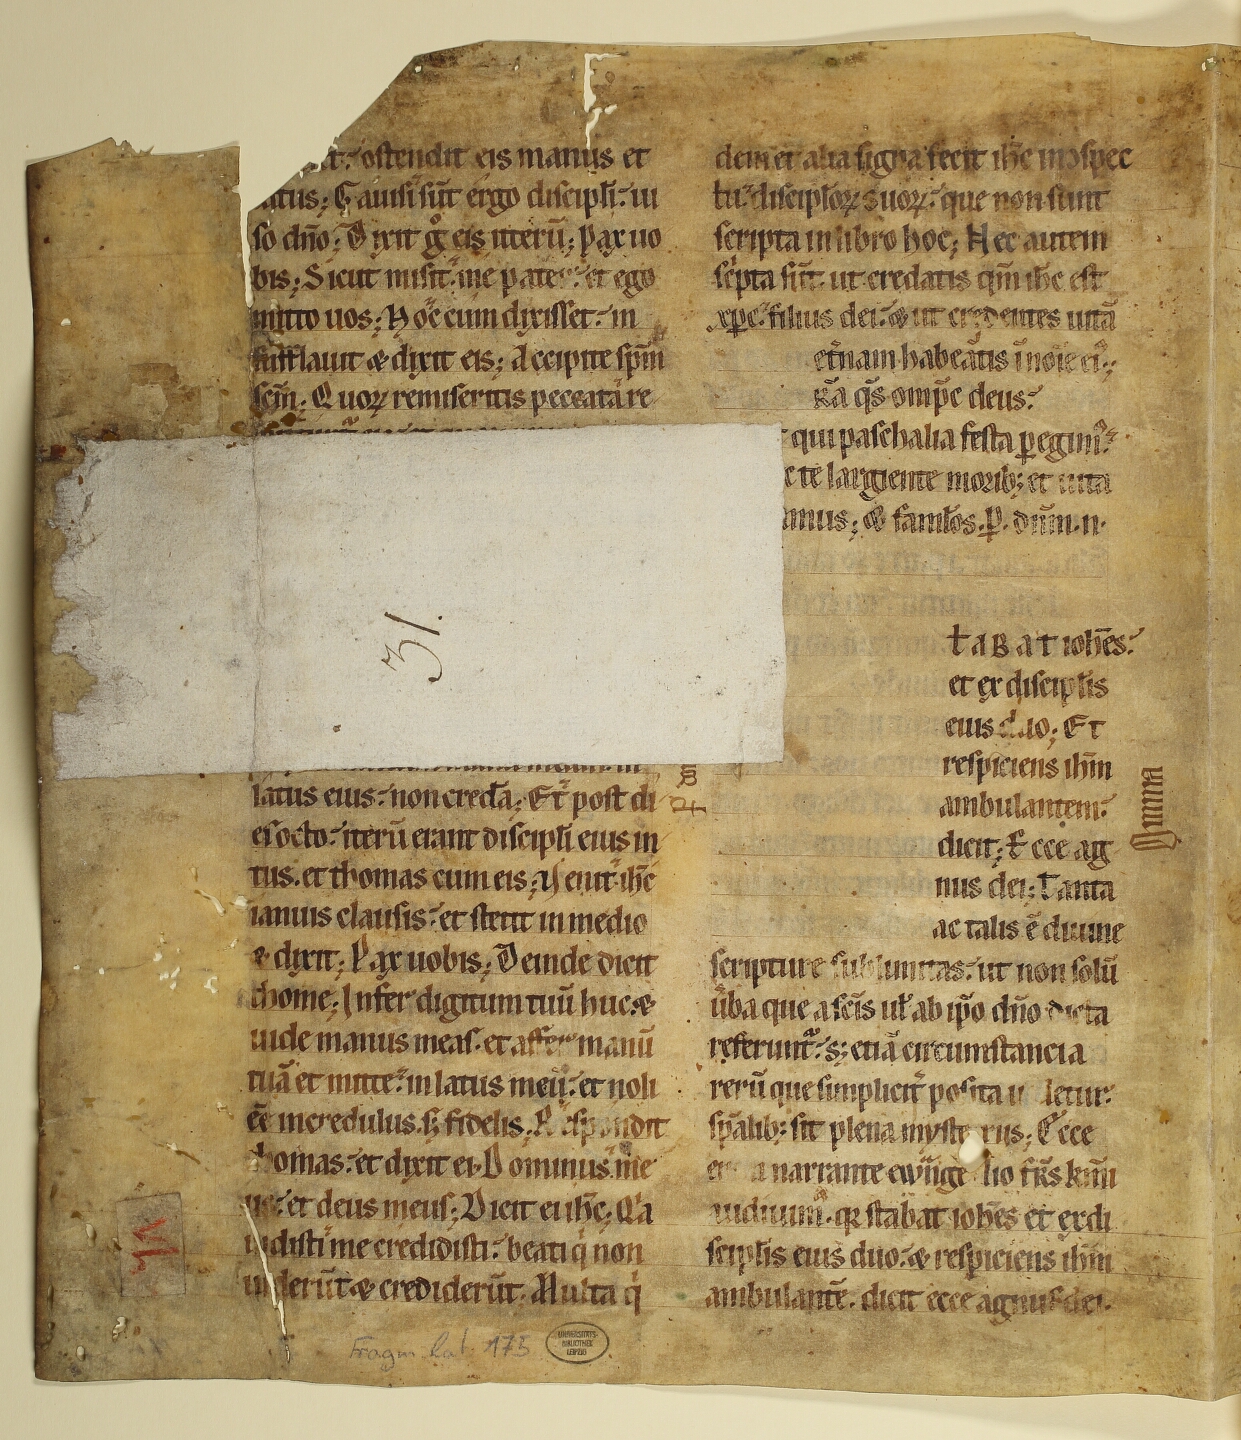 ostendit eis manus et
latus; Gauisi sūt ergo discipl̄i. ui
so dn̄o; Dixit gͦ eis iterū; Pax uo
bis; Sicut misit me pater. et ego
mitto uos; Hoc cum dixisset. in
sufflauit & dixit eis; Accipite sp̄m
sc̄m. Quoꝝ remiseritis peccata re
latus eius. non credā; Et post di
es octo. iterū erant discipl̄i eius in
tus. et thomas cum eis; Uenit ih̄c
ianuis clausis. et stetit in medio
& dixit; Pax uobis; Deinde dicit
thome; Infer digitum tuū huc. &
uide manus meas. et affer manū
tuā et mitte in latus meū. et noli
ēe incredulus. s; fidelis. Respondit
thomas. et dixit ei. Dominus me
us. et deus meus; Dicit ei ih̄c; Qͥa
uidisti me credidisti. beati qͥ non
uiderūt & crediderūt. Multa qͥ
dem et alia signa fecit ih̄c in ↄspec
tu discipl̄oꝝ suoꝝ. que non sunt
scripta in libro hoc; Hec autem
sc̄pta sūt. ut credatis qm̄ ih̄c est
xp̄c. filius dei. & ut credentes uitā
et̄nam habeatis ī noīe ei;
qs̄ omp̄c deus.
qui paschalia festa ꝑegim
te largiente morib; et uita
amus; & famłos. P. dūm. n.
tabat ioh̄es.
et ex discipl̄is
eius duo; Et
respiciens ih̄m
ambulantem.
dicit; Ecce ag
nus dei; Tanta
ac talis ē diuine
scripture sublimitas. ut non solū
ūba que a sc̄is ul̄ ab ip̄o dn̄o dicta
referunt̄. s; etiā circumstancia
rerū que simplicit̄ posita u letur.
sp̄alib; sit plena mysteriis; Ecce
narrante ewnḡelio fr̄s km̄i
audiuim. qꝛ stabat ioh̄es et ex di
scipl̄is eius duo. & respiciens ih̄m
ambulantē. dicit ecce agnus dei.
31.
Fragm. Lat. 175
UNIVERSITÄTS-
BIBLIOTHEK
LEIPZIG